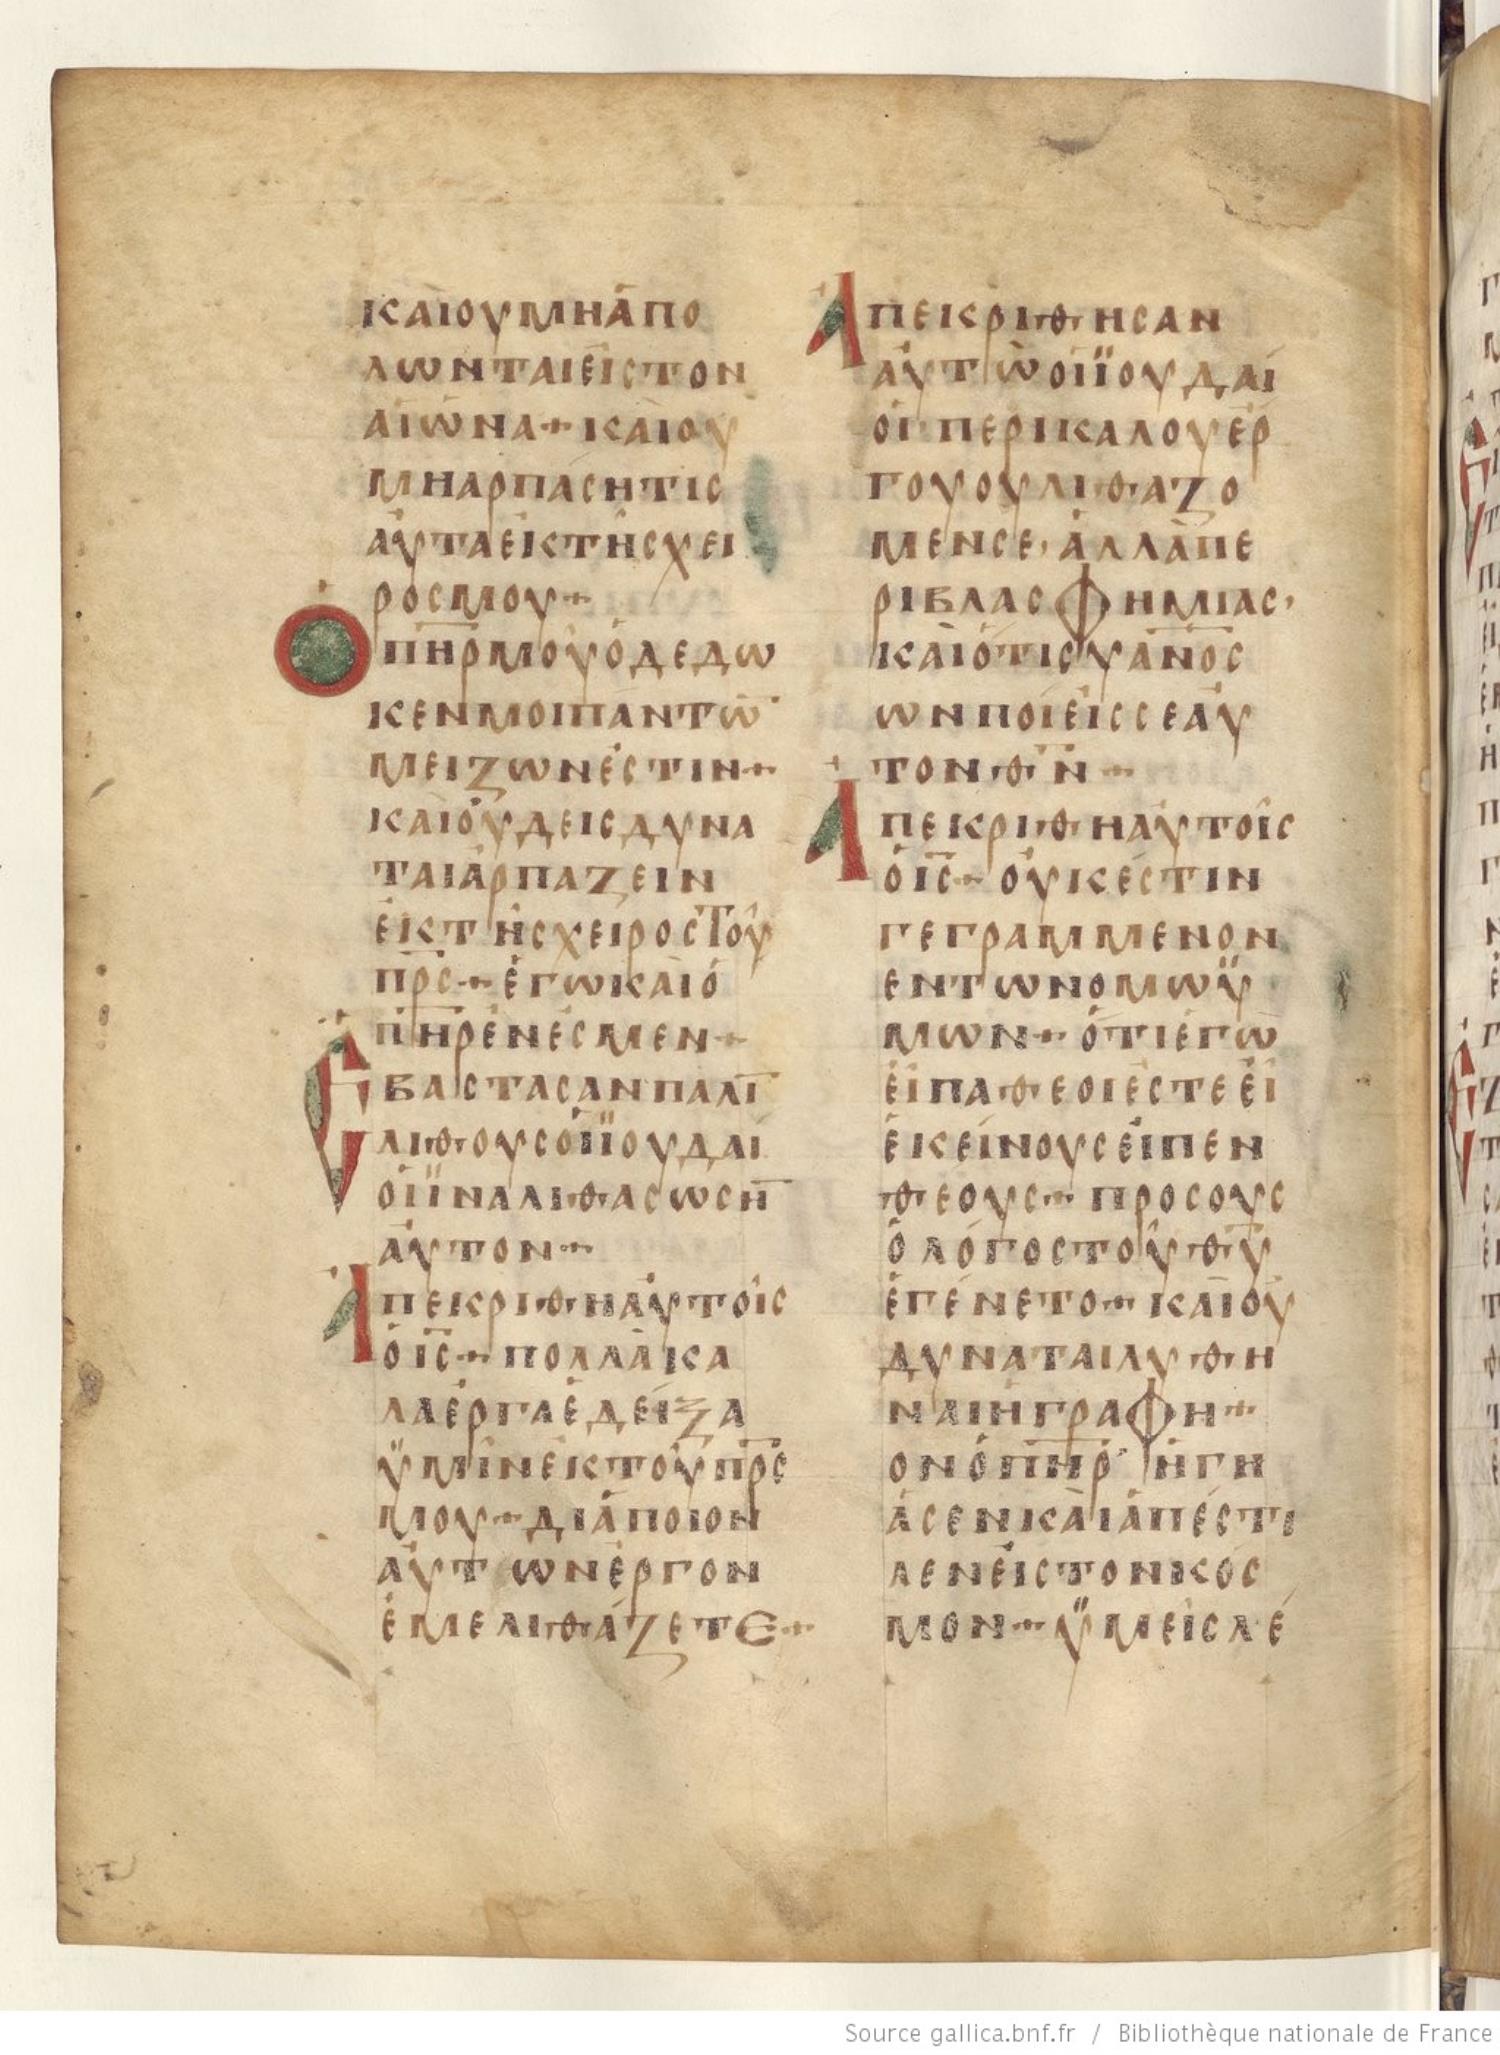 ΚΑΙΟΥΜΗΑΠΟ
ΛΩΝΤΑΙΕΙΣΤΟΝ
ΑΙΩΝΑ·+ΚΑΙΟΥ
ΜΗΑΡΠΑΣΗΤΙΣ
ΑΥΤΑΕΚΤΗΣΧΕΙ
ΡΟΣΜΟΥ·+
ΟΠΗΡΜΟΥΟΔΕΔΩ
ΚΕΝΜΟΙΠΑΝΤΩ̅
ΜΕΙΖΩΝΕΣΤΙΝ·+
ΚΑΙΟΥΔΕΙΣΔΥΝΑ
ΤΑΙΑΡΠΑΖΕΙΝ
ΕΚΤΗΣΧΕΙΡΟΣΤΟΥ
ΠΡΣ·+ΕΓΩΚΑΙΟ
ΠΗΡΕΝΕΣΜΕΝ·+
ΕΒΑΣΤΑΣΑΝΠΑΛΙ̅
ΛΙΘΟΥΣΟΙΪΟΥΔΑΙ
ΟΙΪΝΑΛΙΘΑΣΩΣΗ̅
ΑΥΤΟΝ·+
ΑΠΕΚΡΙΘΗΑΥΤΟΙΣ
ΟΙΣ·+ΠΟΛΛΑΚΑ
ΛΑΕΡΓΑΕΔΕΙΞΑ
ΫΜΙΝΕΚΤΟΥΠΡΣ
ΜΟΥ·+ΔΙΑΠΟΙΟΝ
ΑΥΤΩΝΕΡΓΟΝ
ΕΜΕΛΙΘΑΖΕΤΕ·+
ΑΠΕΚΡΙΘΗΣΑΝ
ΑΥΤΩΟΙΪΟΥΔΑΙ
ΟΙ·ΠΕΡΙΚΑΛΟΥΕΡ
ΓΟΥΟΥΛΙΘΑΖΟ
ΜΕΝΣΕ,ΑΛΛΑΠΕ
ΡΙΒΛΑΣΦΗΜΙΑΣ,
ΚΑΙΟΤΙΣΥΑΝΟΣ
ΩΝΠΟΙΕΙΣΣΕΑΥ
ΤΟΝΘΝ·+
ΑΠΕΚΡΙΘΗΑΥΤΟΙΣ
ΟΙΣ·+ΟΥΚΕΣΤΙΝ
ΓΕΓΡΑΜΜΕΝΟΝ
ΕΝΤΩΝΟΜΩΫ
ΜΩΝ·+ΟΤΙΕΓΩ
ΕΙΠΑΘΕΟΙΕΣΤΕΕΙ
ΕΚΕΙΝΟΥΣΕΙΠΕΝ
ΘΕΟΥΣ·+ΠΡΟΣΟΥΣ
ΟΛΟΓΟΣΤΟΥΘΥ
ΕΓΕΝΕΤΟ·+ΚΑΙΟΥ
ΔΥΝΑΤΑΙΛΥΘΗ
ΝΑΙΗΓΡΑΦΗ·+
ΟΝΟΠΗΡΗΓΗ
ΑΣΕΝΚΑΙΑΠΕΣΤΙ
ΛΕΝΕΙΣΤΟΝΚΟΣ
ΜΟΝ·+ΫΜΕΙΣΛΕ
Source gallica.bnf.fr / Bibliothèque nationale de France